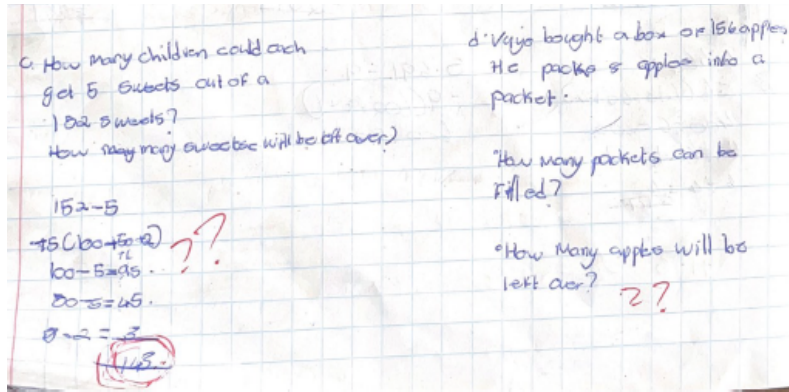 C. How many children could each
get 5 sweets out of a
152 sweets?
How many many sweets will be left over)
152-5
100-5=95.
50-5=45.
5-2=3
143.
??
d. Vuyo bought a box of 156 apples
He packs 8 apples into a
packet.
How many packets can be
Filled?
•How Many apples will be
left over?
??